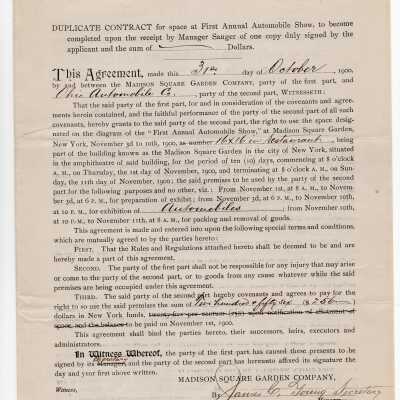 DUPLICATE CONTRACT for space at First Annual Automobile Show, to become
completed upon the receipt by Manager Sanger of one copy duly signed by the
applicant and the sum of Dollars.
This Agreement, made this 31st day of October, 1900,
by and between the MADISON SQUARE GARDEN COMPANY, party of the first part, and
Ohio Automobile Co., party of the second part, WITNESSETH:
That the said party of the first part, for and in consideration of the covenants and agree-
ments herein contained, and the faithful performance by the party of the second part of all such
covenants, hereby grants to the said party of the second part, the right to use the space desig-
nated on the diagram of the "First Annual Automobile Show," at Madison Square Garden,
New York, November 3d to 10th, 1900, as number 16x16 in Restaurant, being
part of the building known as the Madison Square Garden in the city of New York, situated
in the amphitheatre of said building, for the period of ten (10) days, commencing at 8 o'clock
A. M., on Thursday, the 1st day of November, 1900, and terminating at 8 o'clock A. M., on Sun-
day, the 11th day of November, 1900; the said premises to be used by the party of the second
part for the following purposes and no other, viz.: From November 1st, at 8 A. M., to Novem-
ber 3d, at 6 P. M., for preparation of exhibit; from November 3d, at 6 P. M., to November 10th,
at 10 P. M., for exhibition of Automobiles; from November 10th,
at 10 P. M., to November 11th, at 8 A. M., for packing and removal of goods.
This agreement is made and entered into upon the following special terms and conditions,
which are mutually agreed to by the parties hereto:
FIRST. That the Rules and Regulations attached hereto shall be deemed to be and are
hereby made a part of this agreement.
SECOND. The party of the first part shall not be responsible for any injury that may arise
or come to the party of the second part, or to goods from any cause whatever while the said
premises are being occupied under this agreement.
THIRD. The said party of the second part hereby covenants and agrees to pay for the
right to so use the said premises the sum of Two hundred & fifty six ($256
dollars in New York funds, twenty-five per centum (25%) upon notification of allotment of
space, and the balance to be paid on November 1st, 1900.
This agreement shall bind the parties hereto, their successors, heirs, executors and
administrators.
In Witness Whereof, the party of the first part has caused these presents to be
signed by its Secretary Manager, and the party of the second part has hereunto affixed its signature the
day and year first above written.
MADISON SQUARE GARDEN COMPANY,
Witness, By James C. Young Secretary